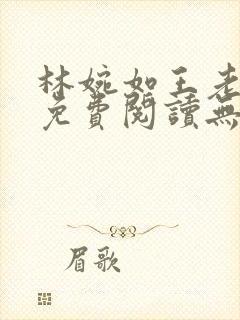 林婉如王老
免費閱讀無
眉歌